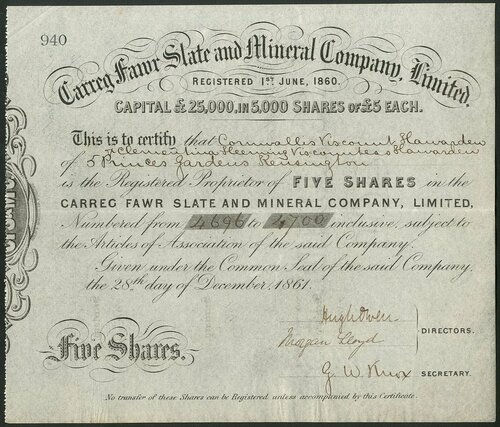 940
Carreg Fawr Slate and Mineral Company, Limited.
REGISTERED 1ST JUNE, 1860.
CAPITAL £25,000, IN 5,000 SHARES OF £5 EACH.
This is to certify that Cornwallis Viscount Hawarden
& Clementina Fleeming Viscountess Hawarden
of 5 Princes Gardens Kensington
is the Registered Proprietor of FIVE SHARES in the
CARREG FAWR SLATE AND MINERAL COMPANY, LIMITED,
Numbered from 4696 to 4700 inclusive, subject to
the Articles of Association of the said Company.
Given under the Common Seal of the said Company,
the 28th day of December, 1861.
Hugh Owen
Morgan Lloyd
DIRECTORS.
Five Shares.
G. W. Knox
SECRETARY.
No transfer of these Shares can be Registered unless accompanied by this Certificate.